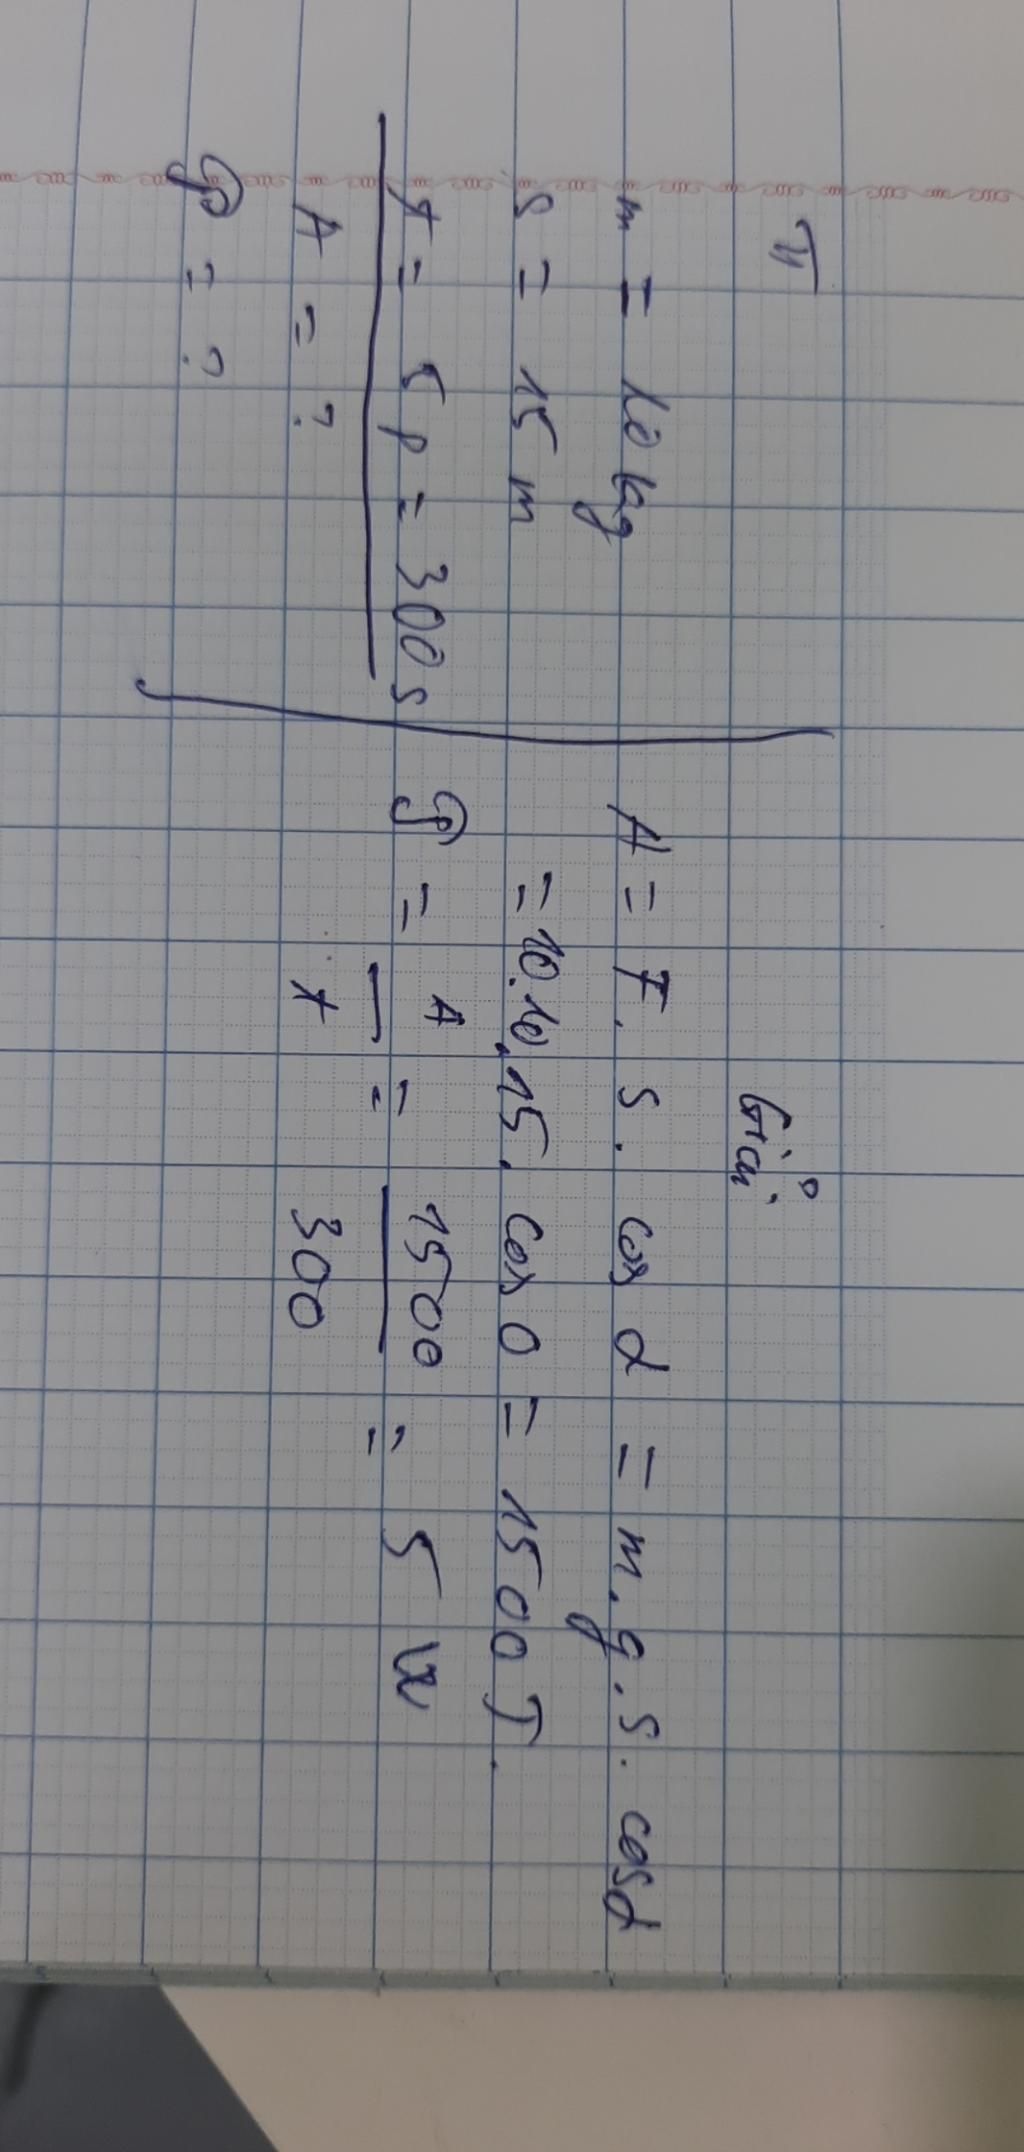 TT
m = 10 kg
S = 15 m
t = 5p = 300s
A = ?
P = ?
Giải
A = F. s. cos α = m.g.s. cosα
= 10.10.15. cos 0 = 1500J.
P = A/t = 1500/300 = 5 W